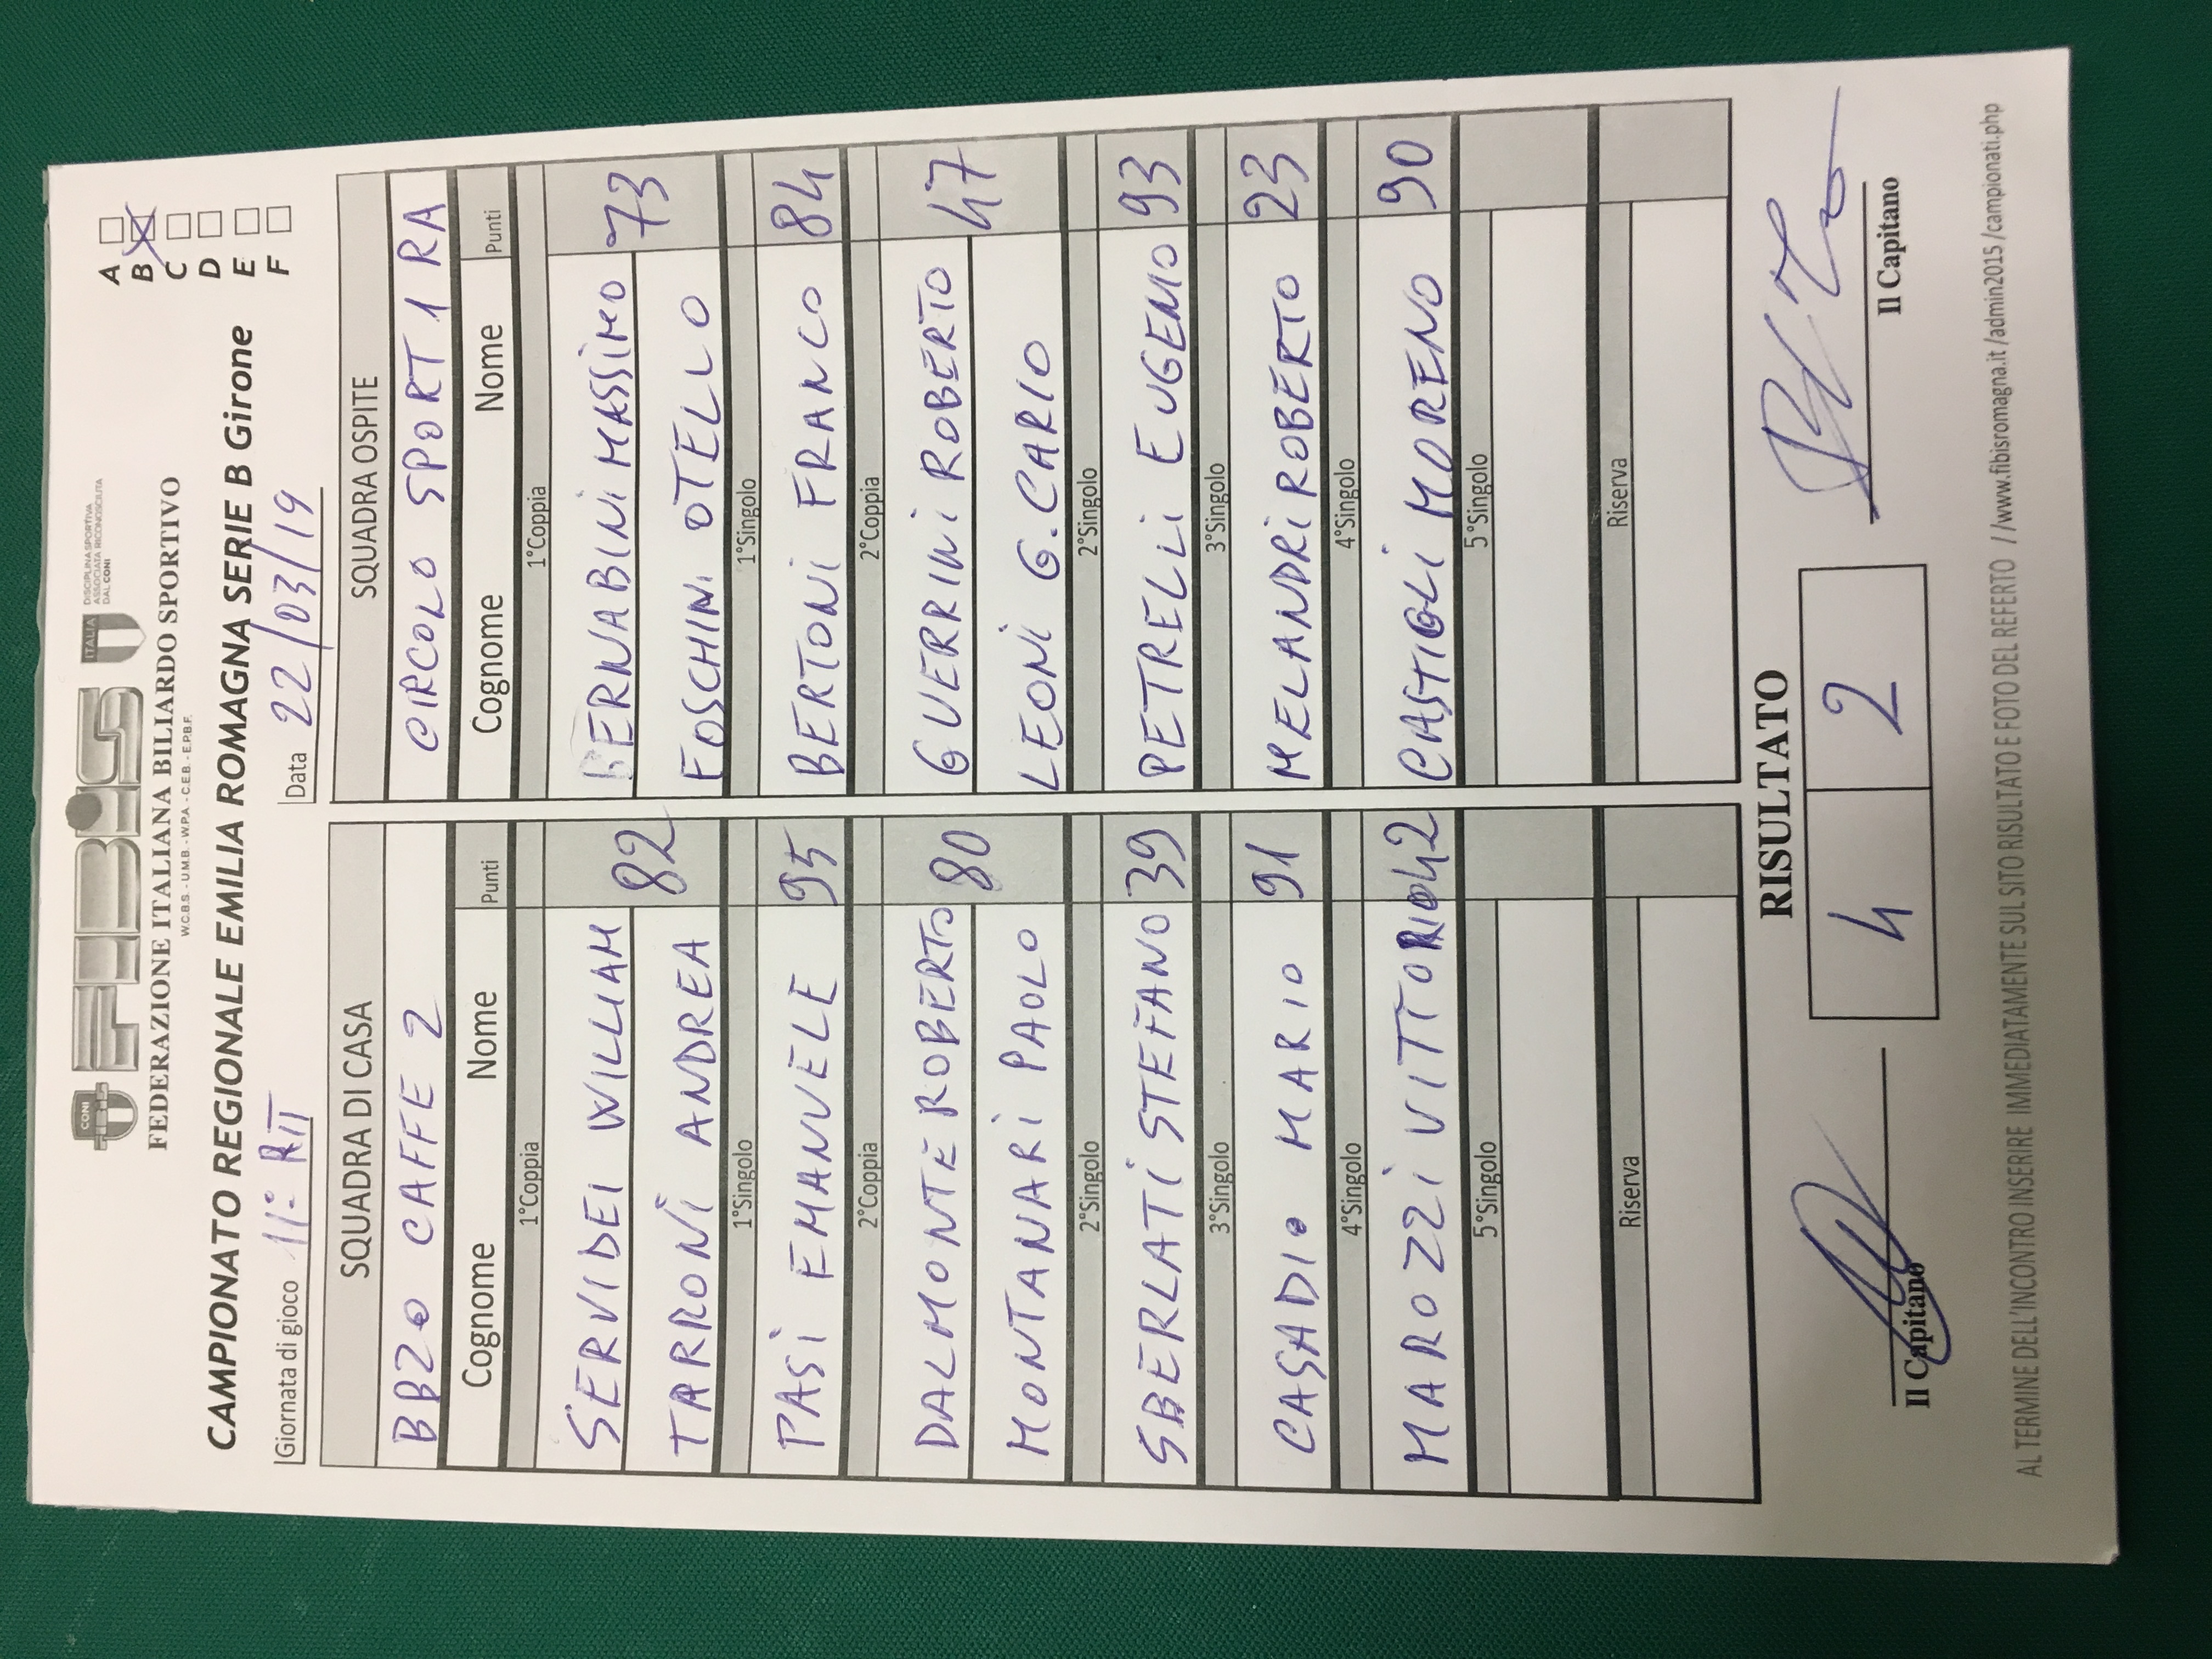 CONI
FIBiS
ITALIA
DISCIPLINA SPORTIVA
ASSOCIATA RICONOSCIUTA
DAL CONI
FEDERAZIONE ITALIANA BILIARDO SPORTIVO
W.C.B.S. - U.M.B. - W.P.A. - C.E.B. - E.P.B.F.
CAMPIONATO REGIONALE EMILIA ROMAGNA SERIE B Girone
A
B
C
D
E
F
Giornata di gioco 11° RIT Data 22/03/19
SQUADRA DI CASA SQUADRA OSPITE
BBZO CAFFE 2 CIRCOLO SPORT 1 RA
Cognome Nome Punti Cognome Nome Punti
1°Coppia 1°Coppia
SERVIDEI WILLIAM 82 BERNABINI MASSIMO 73
TARRONI ANDREA FOSCHINI OTELLO
1°Singolo 1°Singolo
PASI EMANUELE 95 BERTONI FRANCO 84
2°Coppia 2°Coppia
DALMONTE ROBERTO 80 GUERRINI ROBERTO 47
MONTANARI PAOLO LEONI G.CARLO
2°Singolo 2°Singolo
SBERLATI STEFANO 39 PETRELLI EUGENIO 93
3°Singolo 3°Singolo
CASADIO MARIO 91 MELANDRI ROBERTO 23
4°Singolo 4°Singolo
MAROZZI VITTORIO 42 CASTIGLI MORENO 90
5°Singolo 5°Singolo
Riserva Riserva
RISULTATO
4 2
Il Capitano Il Capitano
AL TERMINE DELL'INCONTRO INSERIRE IMMEDIATAMENTE SUL SITO RISULTATO E FOTO DEL REFERTO //www.fibisromagna.it/admin2015/campionati.php